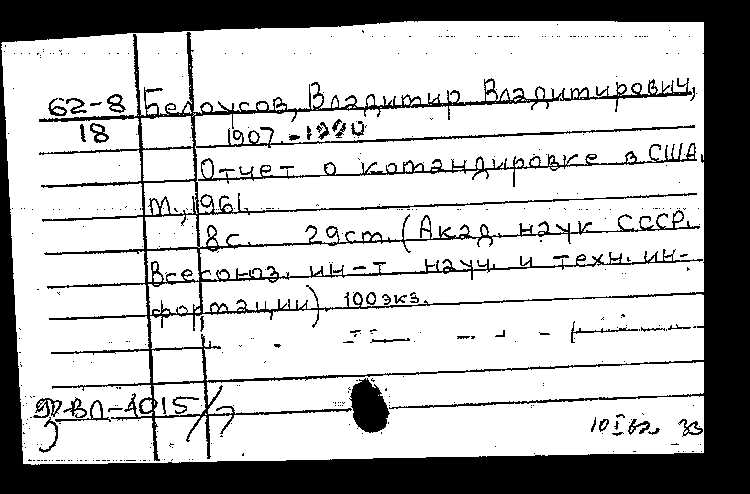 62-8 Белоусов, Владимир Владимирович,
18 1907.-1990
Отчет о командировке в США.
М., 1961.
8с. 29см. (Акад. наук СССР.
Всесоюз. ин-т науч. и техн. ин-
формации). 100экз.
ВЛ-4015
10 I 62